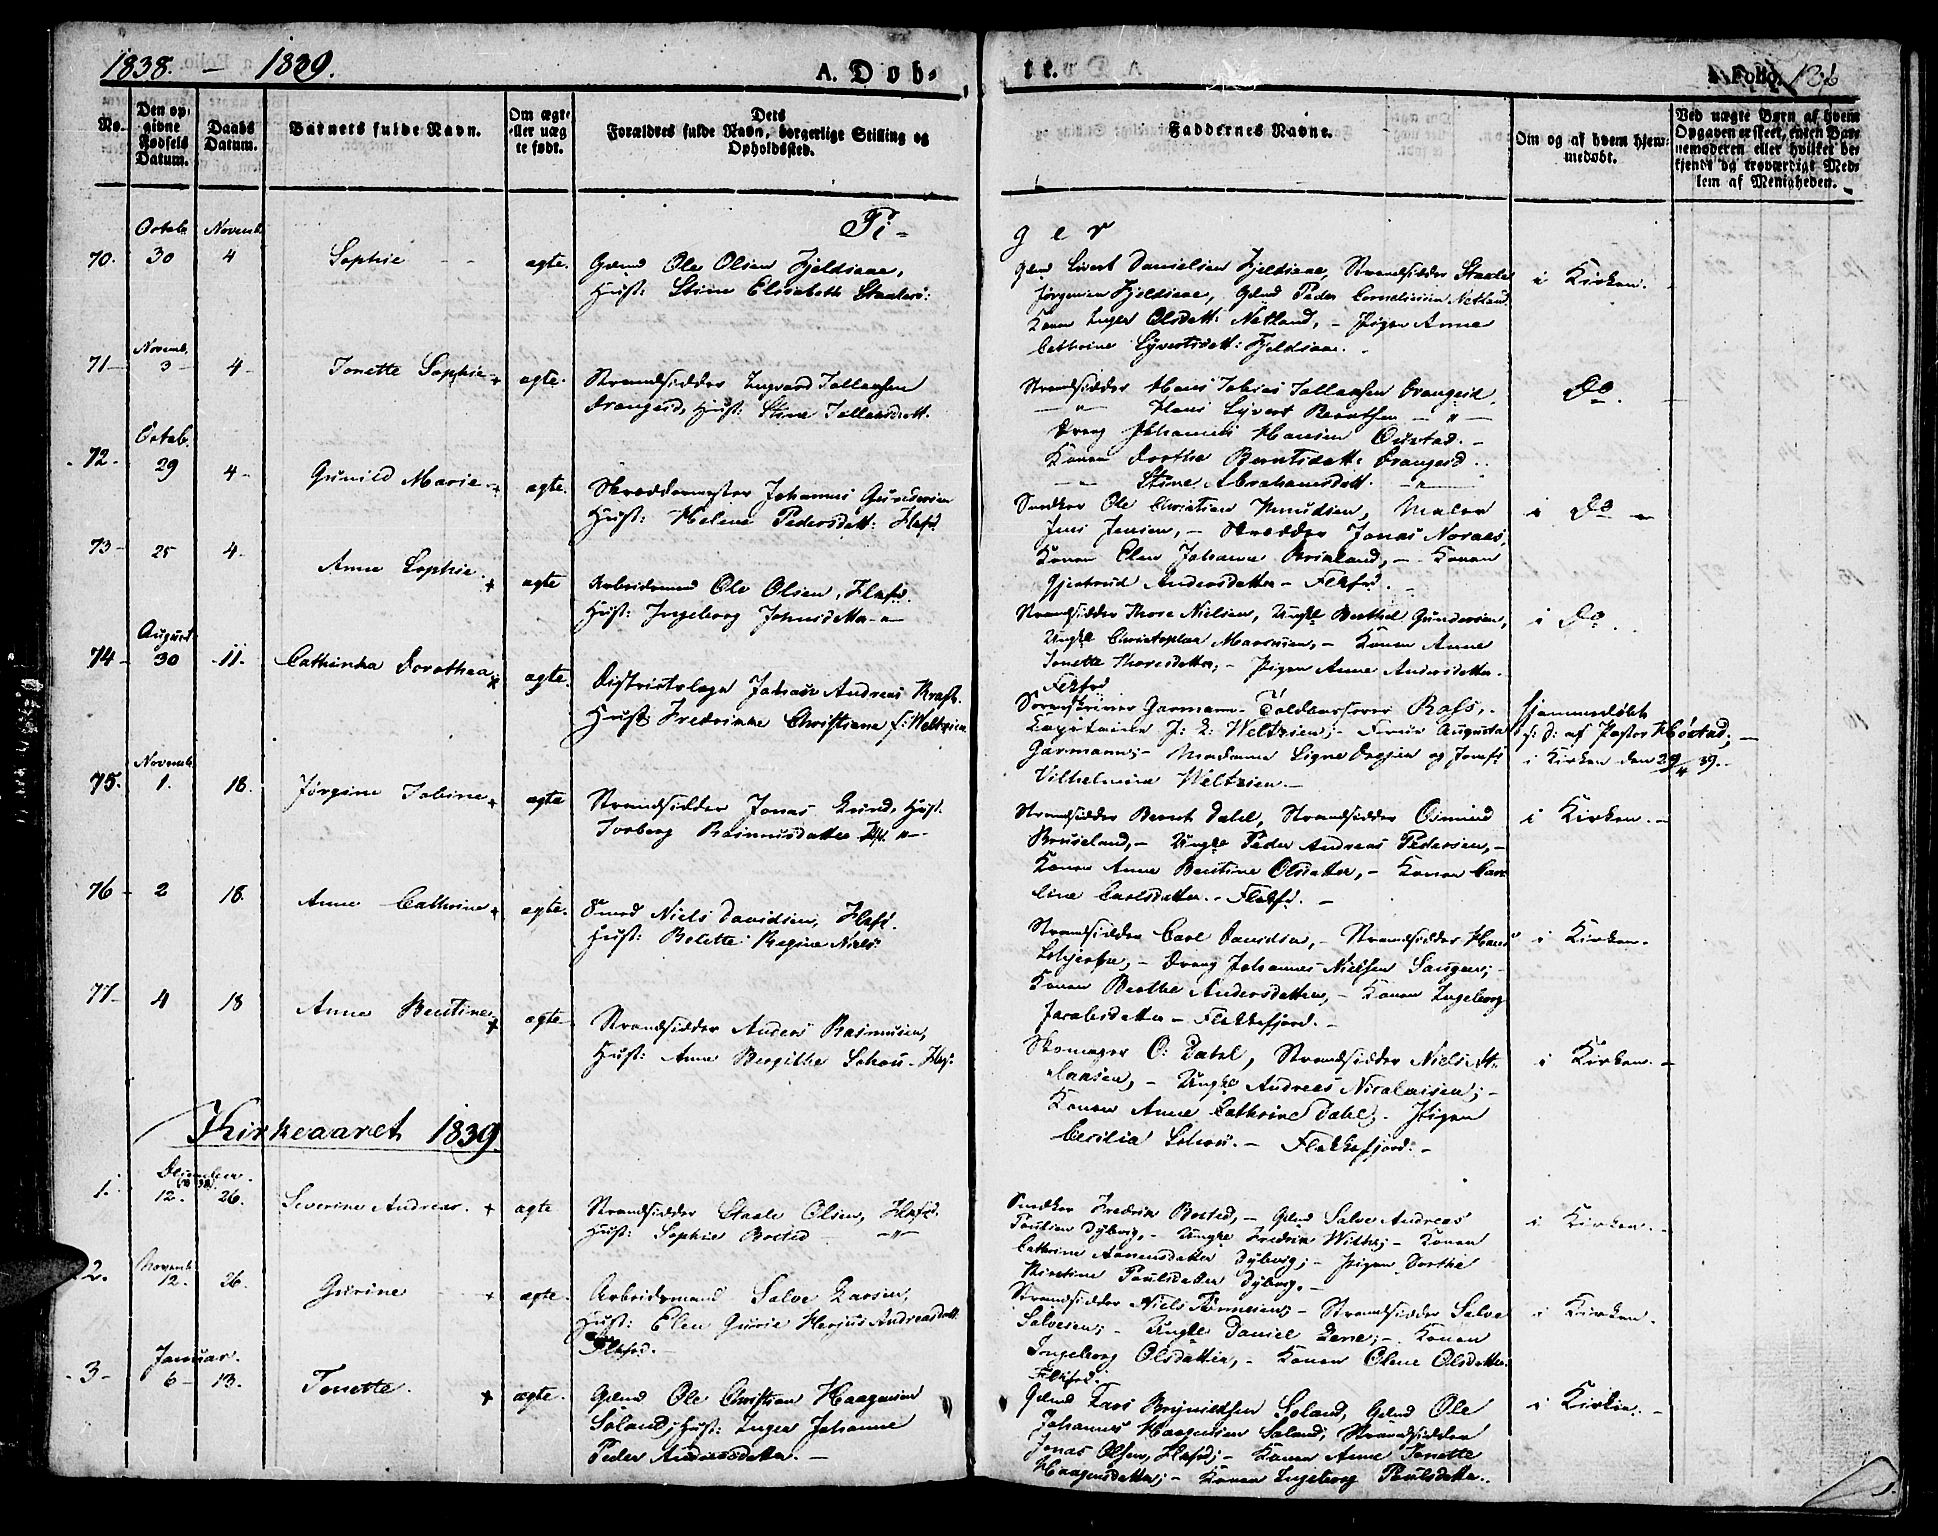 1838. - 1839.
A. Dob-
te.
A. Folio. 136
No.
Den opgivne Fødsels Datum.
Daabs Datum.
Barnets fulde Navn.
Om ægte eller uægte født.
Dets Forældres fulde Navn, borgerlige Stilling og Opholdssted.
Faddernes Navne.
Om og af hvem hjemmedøbt.
Ved uægte Børn af hvem Opgaven er skeet, enten Barnemoderen eller hvilket bekjendt og troværdigt Medlem af Menigheden.
Pi-
ger
Octob. Novemb.
70. 30 4 Sophie - - ægte. Gdmd Ole Olsen Fjeldsaae,
Hust: Stine Elisabeth Staalesd:
Gdmd Sivert Danielsen Fjeldsaae, Strandsidder Staale
Jørgensen Fjeldsaae, Gdmd Peder Corneliusen Netland
Konen Inger Olsdatt: Netland, - Pigen Anne
Cathrine Syvertsdatt: Fjeldsaae.
i Kirken.
Novemb.
71- 3- 4- Tonette Sophie + ægte. Strandsidder Ingvard Tollagsen
Drangeid, Hust: Stine Tollaksdatt.
Strandsidder Hans Tobias Tollagsen Drangeid.
-"- Hans Syvert Berntsen -"-
Dreng Johannes Hansen Øustad. -
Konen Dorthe Berntsdatt: Drangeid.
-"- Stine Abrahamsdatt. -"-
Do.
Octob.
72- 29 4- Gunild Marie + ægte. Skræddermester Johannes Gundersen
Hust: Helene Pedersdatt: Flfd.
Snedker Ole Christian Knudsen, Maler
Jens Jensen, - Skrædder Jonas Noraas,
Konen Elen Johanne Briseland, - Konen
Gjertrud Andersdatter - Flkfrd.
i Do -
73- 25 4. Anne Sophie. + ægte Arbeidsmand Ole Olsen, Flkfd.
Hust: Ingeborg Johnsdatter -"-
Strandsidder Thore Nielsen, Ungkl Berthel Gundersen,
Ungkl Christopher Marcusen, - Konen Anne
Tonette Thoresdatter; - Pigen Anne Andersdatter.
Flkfrd.
i Do.
August
74- 30 11. Cathinka Dorothea + ægte. Districtslæge Johan Andreas Kraft.
Hust: Fredrikke Christiane f: Weltzien
Sorenskriver Garmann. Toldkasserer Rafs,
Capitaine J: L: Weltzien; - Frøken Augusta
Garmann; - Madame Signe Drejer og Jomfr
Vilhelmine Weltzien. -
Hjemmedøbt
s: d: af Pastor Høstad; -
i Kirken den 29/4 39.
Novemb.
75. 1. 18. Jørgine Tobine + ægte Strandsidder Jonas Lund, Hust:
Torborg Rasmusdatter Flfd. -"-
Strandsidder Bernt Dahl, Strandsidder Osmund
Briseland, - Ungkl Peder Andreas Pedersen, -
Konen Anne Bentine Olsdatter, - Konen Caro
line Carlsdatter. - Flekfd. -
i Kirken. -
76- 2 18. Anne Cathrine + ægte. Smed Niels Davidsen, Flkfd.
Hust: Bolette Regine Niels:
Strandsidder Carl Davidsen, - Strandsidder Hans
- Dreng Johannes Nielsen
Konen Berthe Andersdatter, - Konen Ingeborg
Jacobsdatter - Flekkefjord. -
i Kirken.
77- 4 18 Anne Bentine + ægte Strandsidder Anders Rasmusen,
Hust: Anne Bergithe Schou - Flkf:
Skomager O: Dahl, Strandsidder Niels At-
laksen, - Ungkl Andreas Nicolaisen; -
Konen Anne Cathrine Dahl; - Pigen
Cecilia Schou. - Flekkefjord. -
i Kirken. -
Kirkeaaret 1839.
December
(1838).
1. 12. 26. Severine Andrea. + ægte Strandsidder Staale Olsen, Flkfd.
Hust: Sophie Bosted -"-
Snedker Fredrik Bosted, - Gdmd Salve Andreas
Poulsen Dybvig, - Ungkl Fredrik Wilth; - Konen
Cathrine Aanensdatter Dybvig; - Pigen Dorthe
Kirstine Poulsdatter Dybvig. -
i Kirken. -
Novemb.
2. 12. 26. Gurine + ægte. Arbeidsmand Salve Larsen,
Hust: Elen Gurie Herjus Andreasdatt.
Flkfrd. -
Strandsidder Niels Tønnesen; - Strandsidder Salve
Salvesen; - Ungkl Daniel Lene; - Konen
Ingeborg Olsdatter, - Konen Olene Olsdatter
Flkfrd.
i Kirken.
Januar.
3- 6- 13. Tonette. + ægte. Gdmd Ole Christian Haagensen
Søland; Hust: Inger Johanne
Peder Andreasdatter. -
Gdmd Lars Brynildsen Søland, Gdmd Ole
Johannes Haagensen Søland; Strandsidder
Jonas Olsen, Flkfd; - Konen Anne Tonette
Haagensdatter; - Konen Ingeborg Poulsdatter.
i Kirken. -